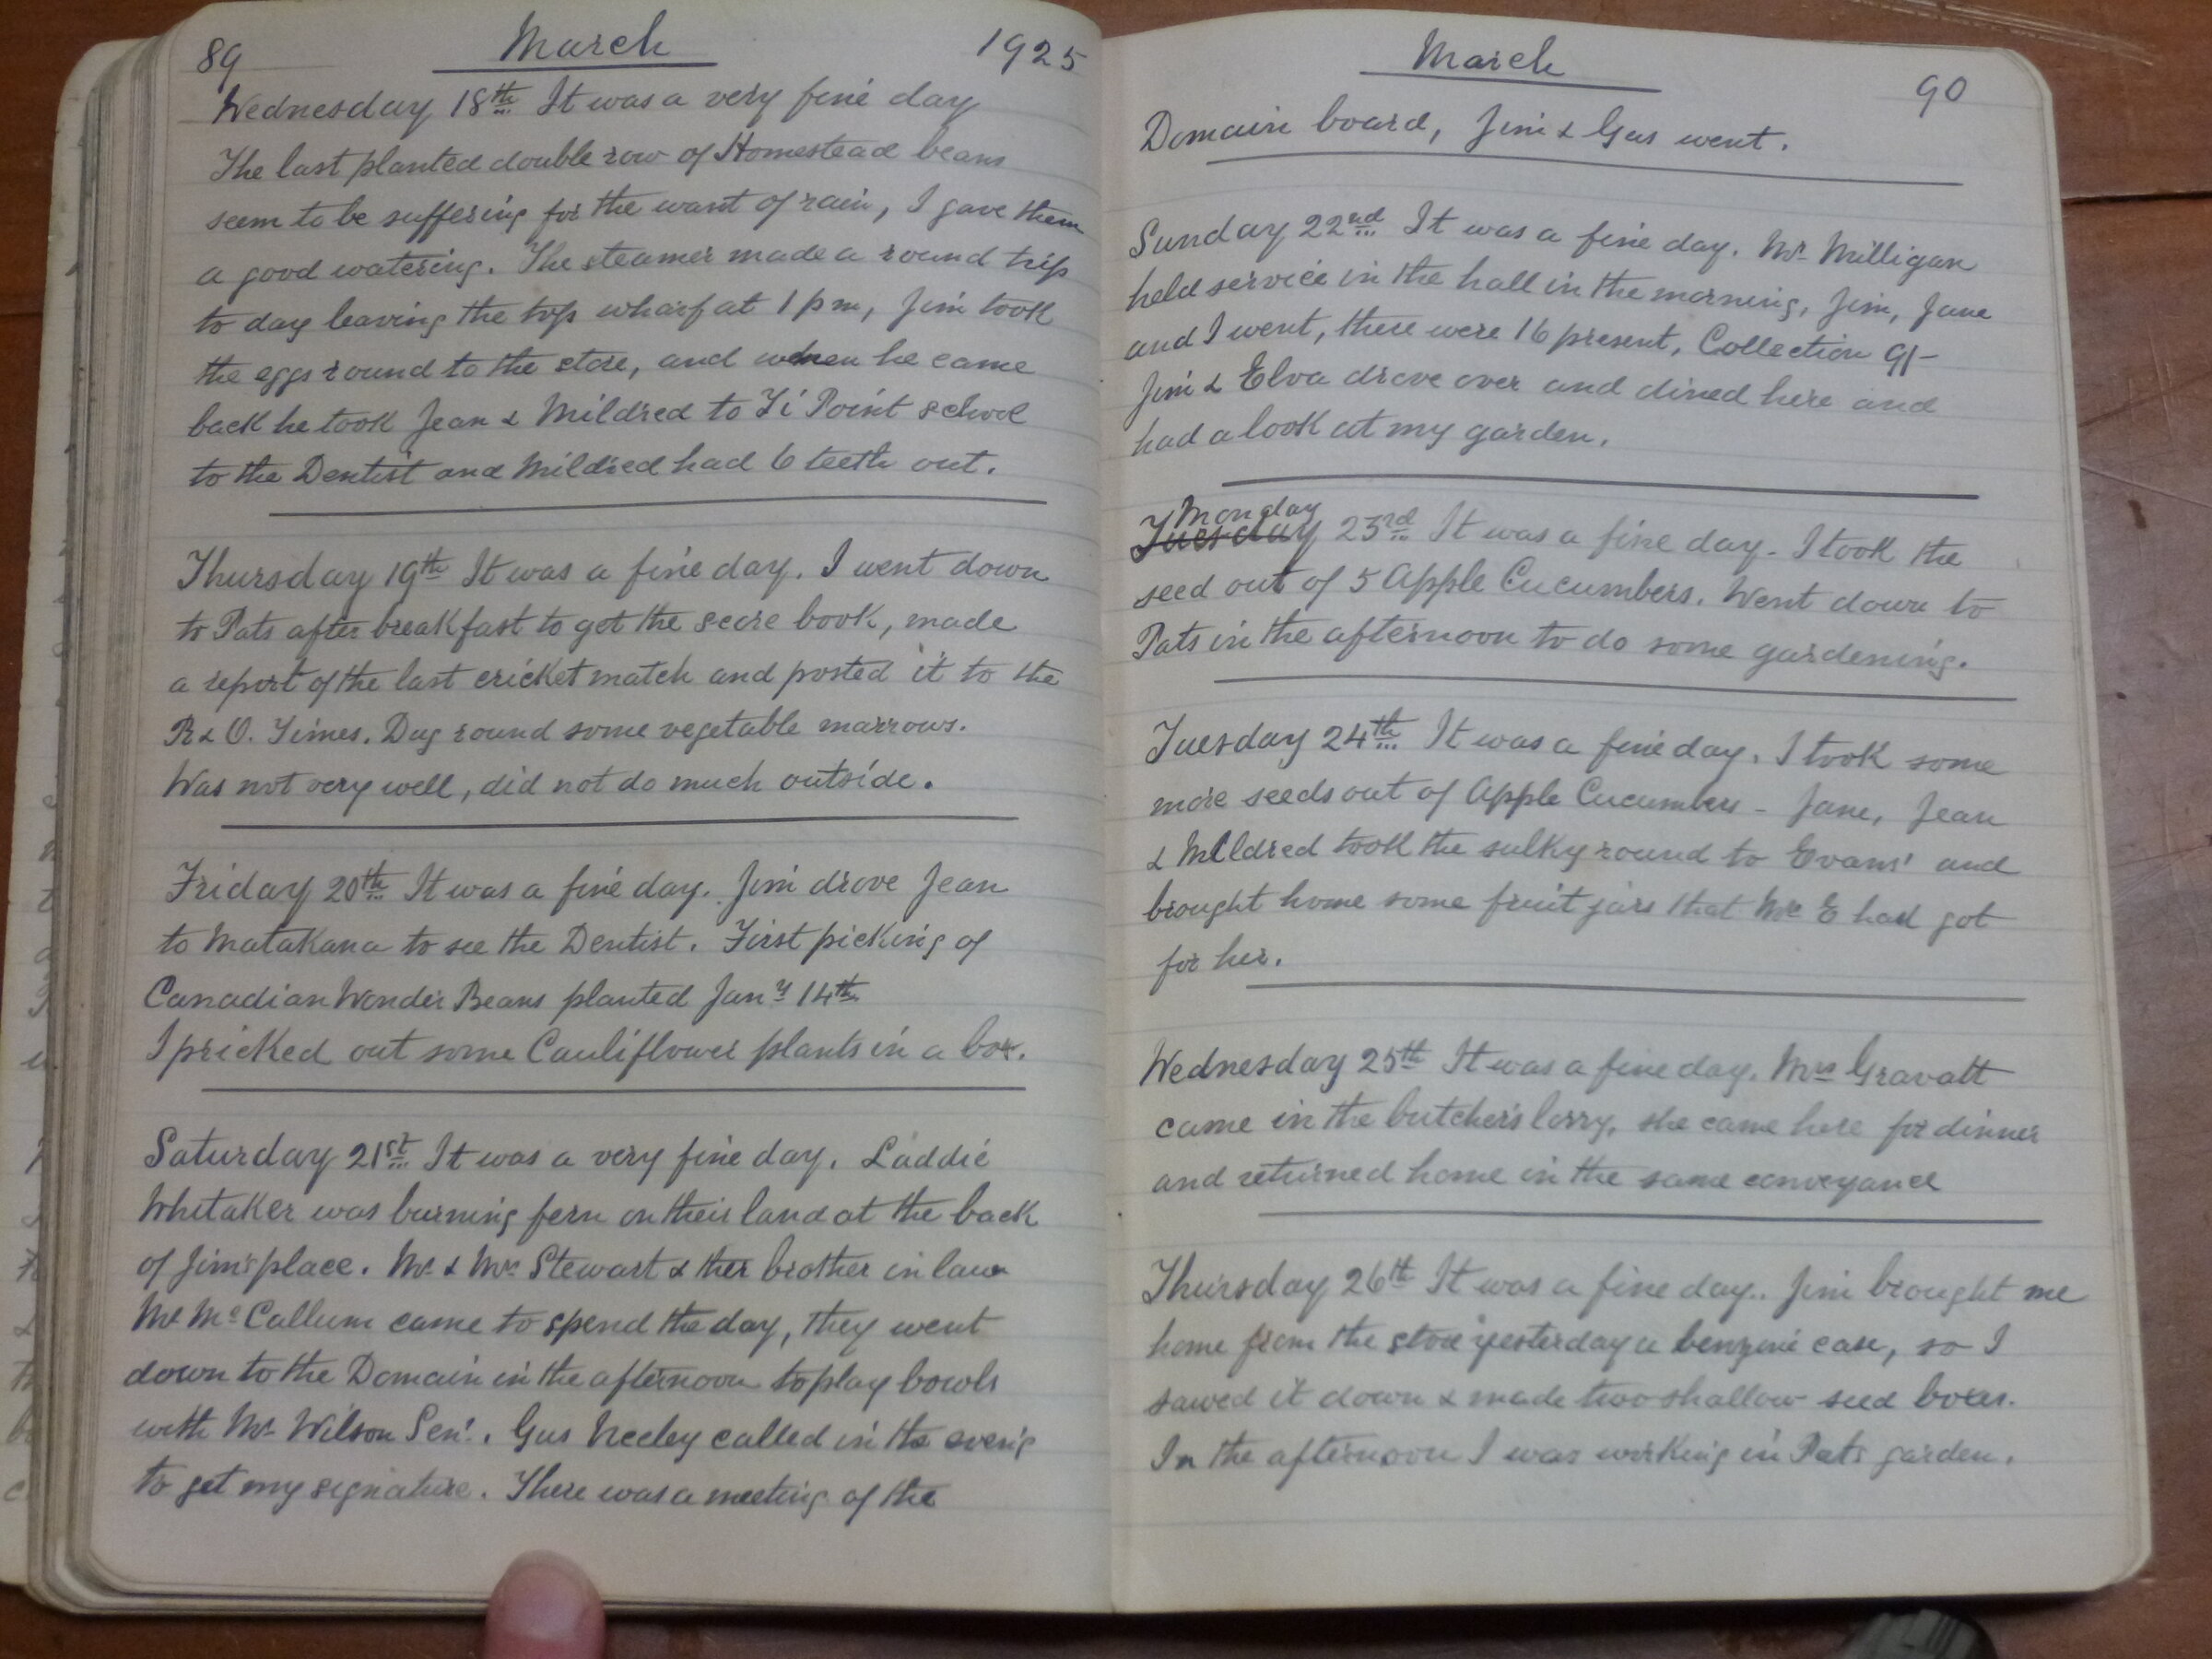 89 March 1925
Wednesday 18th It was a very fine day
The last planted double row of Homestead beans
seem to be suffering for the want of rain, I gave them
a good watering. The steamer made a round trip
to day leaving the top wharf at 1 pm, Jim took
the eggs round to the store, and when he came
back he took Jean & Mildred to Ti Point school
to the Dentist and Mildred had 6 teeth out.
Thursday 19th It was a fine day. I went down
to Pats after breakfast to get the score book, made
a report of the last cricket match and posted it to the
R & O. Times. Dug round some vegetable marrows.
Was not very well, did not do much outside.
Friday 20th It was a fine day. Jim drove Jean
to Matakana to see the Dentist. First picking of
Canadian Wonder Beans planted Jany 14th
I pricked out some Cauliflower plants in a box.
Saturday 21st It was a very fine day. Laddie
Whitaker was burning fern on their land at the back
of Jim's place. Mr & Mrs Stewart & ther brother in law
Mr McCallum came to spend the day, they went
down to the Domain in the afternoon to play bowls
with Mr Wilson Senr. Gus Neeley called in the eveng
to get my signature. There was a meeting of the
March 90
Domain board, Jim & Gus went.
Sunday 22nd It was a fine day. Mr Milligan
held service in the hall in the morning, Jim, Jane
and I went, there were 16 present, Collection 9/-
Jim & Elva drove over and dined here and
had a look at my garden.
Monday
Tuesday 23rd It was a fine day. I took the
seed out of 5 Apple Cucumbers. Went down to
Pats in the afternoon to do some gardening.
Tuesday 24th It was a fine day. I took some
more seeds out of Apple Cucumbers - Jane, Jean
& Mildred took the sulky round to Evans' and
brought home some fruit jars that Mr E had got
for her.
Wednesday 25th It was a fine day. Mrs Gravatt
came in the butcher's lorry, she came here for dinner
and returned home in the same conveyance
Thursday 26th It was a fine day.. Jim brought me
home from the store yesterday a benzine case, so I
sawed it down & made two shallow seed boxes.
In the afternoon I was working in Pats garden.